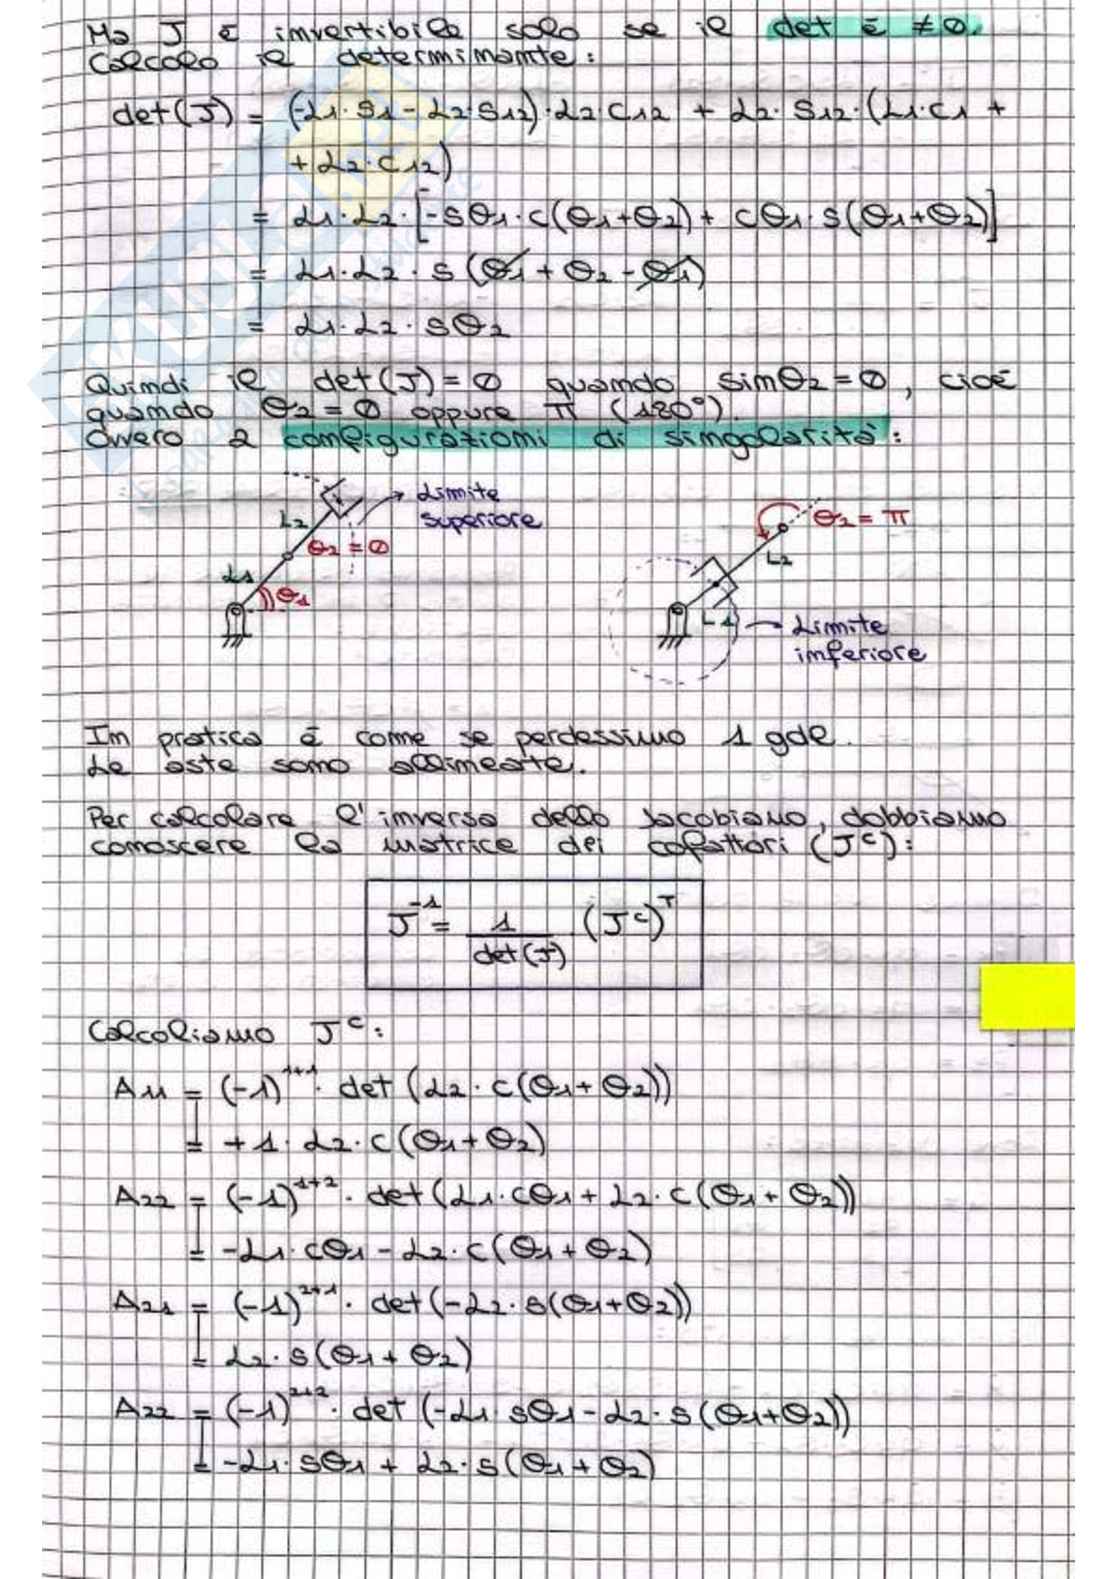 Ma J è invertibile solo se il det è ≠ 0.
Calcolo il determinante:
det(J) = (-L1·S1 - L2·S12)·L2·C12 + L2·S12·(L1·C1 +
+ L2·C12)
= L1·L2·[-Sθ1·C(θ1+θ2) + Cθ1·S(θ1+θ2)]
= L1·L2·S(θ1 + θ2 - θ1)
= L1·L2·Sθ2
Quindi il det(J) = 0 quando sinθ2 = 0, cioè
quando θ2 = 0 oppure π (180°).
Ovvero 2 configurazioni di singolarità:
Limite
superiore
L2
θ2 = 0
L1
θ1
θ2 = π
L2
L1
Limite
inferiore
In pratica è come se perdessimo 1 gdl.
Le aste sono allineate.
Per calcolare l'inversa dello Jacobiano, dobbiamo
conoscere la matrice dei cofattori (J^c):
J^-1 = 1/det(J) · (J^c)^T
Calcoliamo J^c:
A11 = (-1)^1+1 · det (L2·C(θ1+θ2))
= +1·L2·C(θ1+θ2)
A22 = (-1)^1+2 · det (L1·Cθ1 + L2·C(θ1+θ2))
= -L1·Cθ1 - L2·C(θ1+θ2)
A21 = (-1)^2+1 · det (-L2·S(θ1+θ2))
= L2·S(θ1+θ2)
A22 = (-1)^2+2 · det (-L1·Sθ1 - L2·S(θ1+θ2))
= -L1·Sθ1 + L2·S(θ1+θ2)